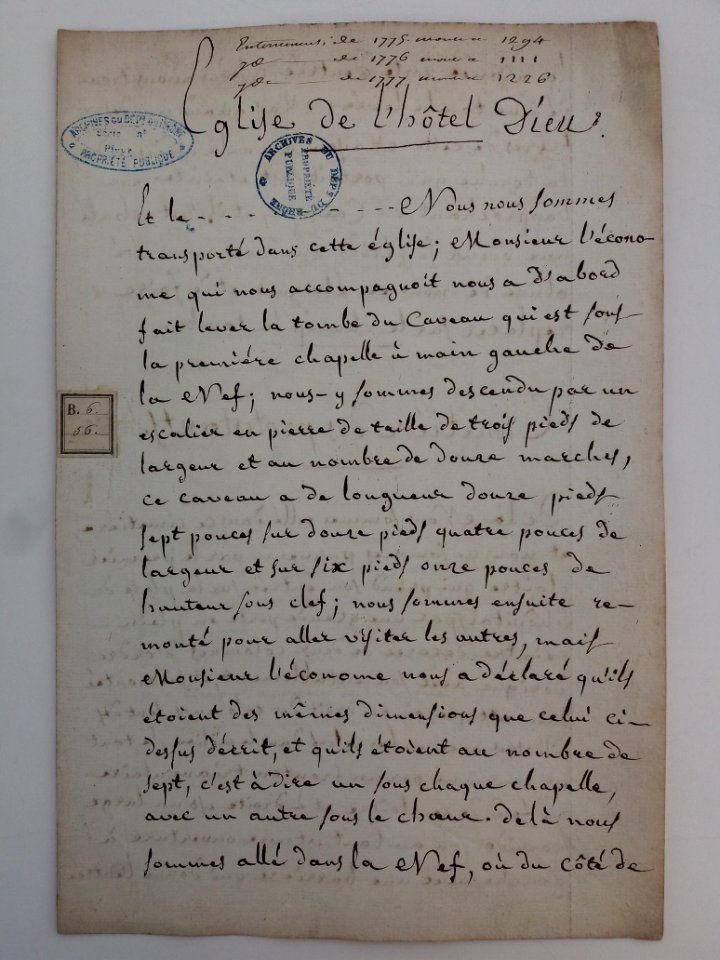 Enterrements de 1775. monte a 1294
jde de 1776 monte a 1111
jde de 1777 monte a 1226
Eglise de l'hôtel Dieu.
ARCHIVES DU DÉPT DU RHÔNE
Série n°
Pièce
PROPRIÉTÉ PUBLIQUE
ARCHIVES DU DÉPT DU RHÔNE
PROPRIÉTÉ
PUBLIQUE
Et le - - - - - - - - - - Nous nous sommes
transporté dans cette église; Monsieur l'écono-
me qui nous accompagnoit nous a d'abord
fait lever la tombe du Caveau qui est sous
la premiére chapelle à main gauche de
la Nef; nous-y sommes descendu par un
escalier en pierre de taille de trois pieds de
largeur et au nombre de douze marches,
ce caveau a de longueur douze pieds
sept pouces sur douze pieds quatre pouces de
largeur et sur six pieds onze pouces de
hauteur sous clef; nous sommes ensuite re-
monté pour aller visiter les autres, mais
Monsieur l'économe nous a déclaré qu'ils
étoient des mêmes dimensions que celui ci-
dessus décrit, et qu'ils étoient au nombre de
sept, c'est à dire un sous chaque chapelle,
avec un autre sous le chœur. De là nous
sommes allé dans la Nef, où du côté de
B. 6.
56.